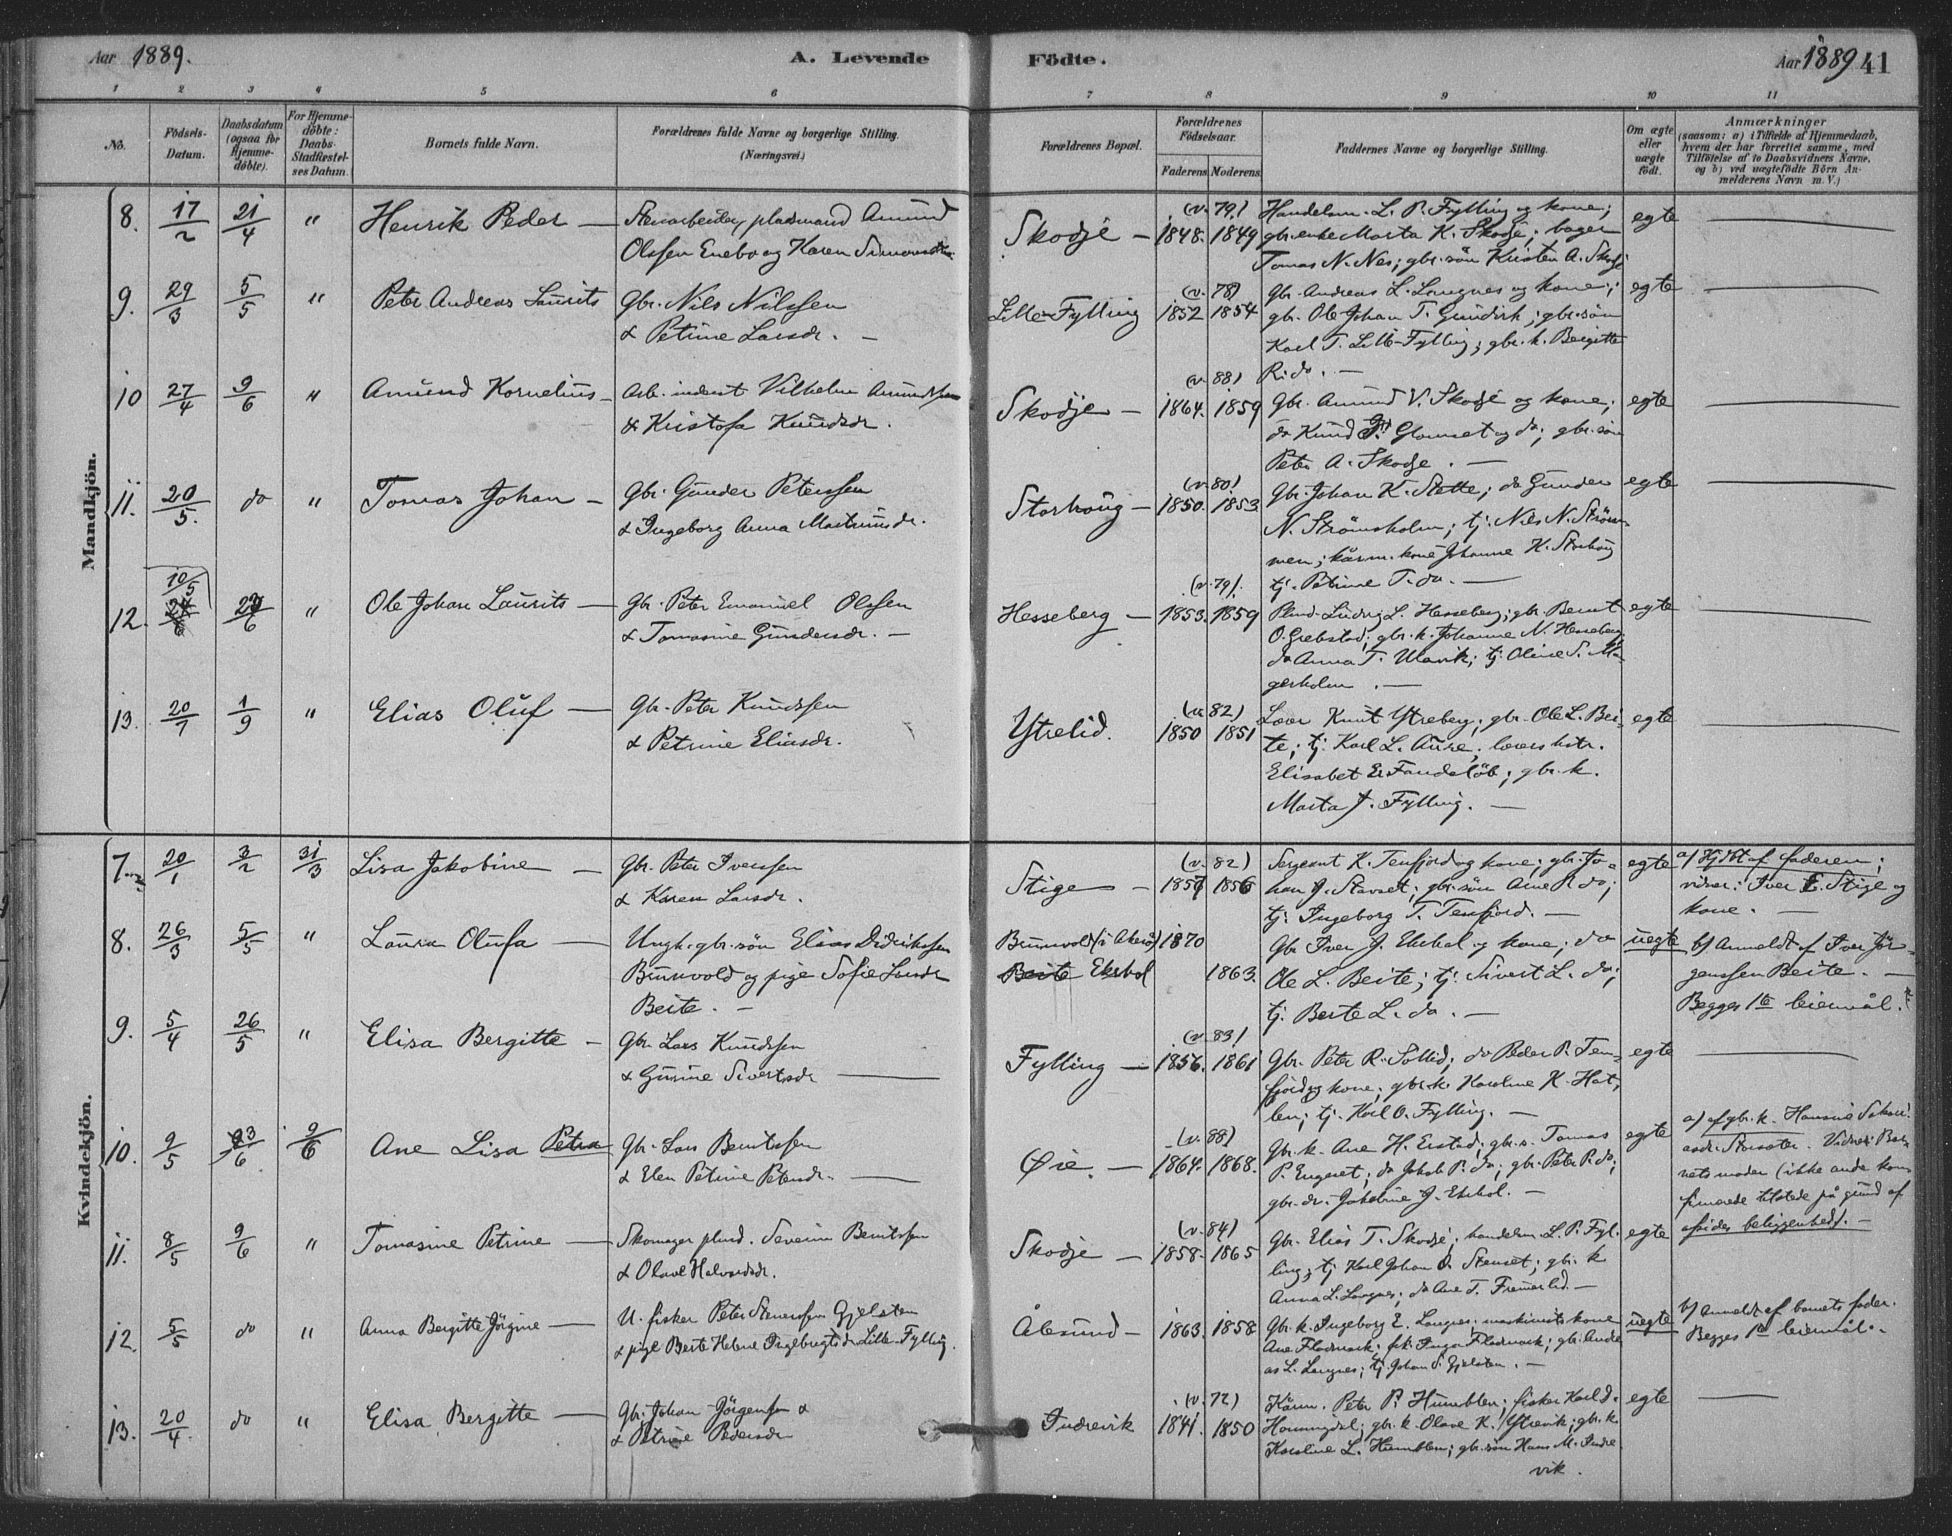 Aar 1889.
A. Levende
Födte.
Aar 1889 41
1 2 3 4 5 6 7 8 9 10 11
No.
Födsels-
Datum.
Daabsdatum
(ogsaa for
Hjemme-
döbte).
For Hjemme-
döbte:
Daabs-
Stadfæstel-
ses Datum.
Barnets fulde Navn.
Forældrenes fulde Navne og borgerlige Stilling.
(Næringsvei.)
Forældrenes Bopæl.
Forældrenes
Födselsaar.
Faderens Moderens
Faddernes Navne og borgerlige Stilling.
Om ægte
eller
uægte
födt.
Anmærkninger
(saasom: a) i Tilfælde af Hjemmedaab,
hvem der har forrettet samme, med
Tilföielse af to Daabsvidners Navne.
og b) ved uægtefödte Börn An-
melderens Navn m. V.)
Mandkjön.
8. 17/2 21/4 " Henrik Peder —
Stenarbeider, pladsmand Amund
Olssen Enebo og Karen Simonsdtr.
Skodje —
(v. 79)
1848. 1849
Handelsm. L. P. Fylling og kone;
gbr.enke Marta K. Skodje; bager
Tomas N. Nes; gbr.sön Kristen A. Skodje
egte
9. 29/3 5/5 " Peter Andreas Laurits
Gbr. Nils Nilssen
& Petrine Larsdr. —
Lille-Fylling
(v. 78)
1852 1854
Gbr. Andreas L. Langnes og kone;
gbr. Ole Johan T. Gundersh; gbr.sön
Karl T. Lille-Fylling; gbr. k. Bergitte
R. do. —
egte
10 27/4 9/6 " Amund Kornelius —
Arb. inderst Vilhelm Amundssen
& Kristofa Knudsdr.
Skodje —
(v. 88)
1864. 1859
Gbr. Amund V. Skodje og kone;
do Knud P. Glomset og do; gbr. sön
Peter A. Skodje. —
egte
11. 20/5. do " Tomas Johan —
Gbr. Gunder Peterssen
& Ingeborg Anna Martinusdr.
Storhoug —
(v. 80)
1850. 1853.
Gbr. Johan K. Stette; do Gunder
N. Strömsholm; tj. Nils N. Ström-
men; kårm. kone Johanne K. Storhoug
tj. Petrine T. do. —
egte
12. 10/5 23/6 " Ole Johan Laurits —
Gbr. Peter Emanuel Olssen
& Tomasine Gundersdr. —
Hesseberg —
(v. 79).
1853. 1859
Plmd. Ludvig L. Hesseberg; gbr. Bernt
O. Grebstad; gbr. k. Johanne N. Hesseberg
do Anna T. Ulavik; tj. Oline S. Ma-
gerholm. —
egte
13. 20/7 1/9 " Elias Oluf —
Gbr. Peter Knudssen
& Petrine Eliasdr.
Ytrelid.
(v. 82)
1850 1851
Lærer Knut Ytreberg; gbr. Ole L. Bei-
te; tj. Karl L. Aure; lærers hstr.
Elisabet E. Fandslöb; gbr. k.
Marta J. Fylling. —
egte
Kvindekjön.
7. 20/1 3/2 31/3 Lisa Jakobine —
Gbr. Peter Iverssen
& Karen Larsdr.
Stige —
(v. 82)
1857 1856
Sergeant K. Tenfjord og kone; gbr. Jo-
han J. Stavset; gbr.sön Arne R. do;
tj. Ingeborg T. Tenfjord. —
egte
a) Hjdbt af faderen;
vidner: Iver E. Stige og
kone. —
8. 26/3 5/5 " Laura Olufa —
Ungk. gbr. sön Elias Didrikssen
Brunvold og pige Sofie Larsdr
Beite. —
Brunvold (i Akerö)
Beite Ekshol
1870
1863.
Gbr Iver J. Ekshol og kone; do
Ole L. Beite; tj. Sivert L. do;
tj. Berte L. do. —
uegte
b) Anmeldt af Iver Jör-
genssen Beite. —
Begges 1te leiermål.
9. 5/4 26/5 " Elisa Bergitte —
Gbr. Lars Knudssen
& Gurine Sivertsdr —
Fylling —
(v. 83)
1856. 1861
Gbr. Peter R. Sollid; do Peder P. Ten-
fjord og kone; gbr. k. Karoline K. Hat-
len; tj. Karl O. Fylling. —
egte
10. 9/5 23/6 9/6 Ane Lisa Petra
Gbr. Lars Berntssen
& Elen Petrine Petersdr. —
Øie. —
(v. 88)
1864. 1868.
Gbr. k. Ane H. Erstad; gbr. s. Tomas
P. Engeset; do Jakob P. do; gbr. Peter P. do;
gbr. dr. Jakobine J. Ekshol. —
egte
a) af gbr. k. Hansine Sakari-
asdr. Stensæter. Vidner: Bar-
nets moder (ikke andre kon-
firmerede tilstede på grund af
afsides beliggenhed). —
11. 8/5 9/6 " Tomasine Petrine —
Skomager plmd. Severin Berntssen
& Olave Halvardsdr.
Skodje —
(v. 84)
1858. 1865
Gbr. Elias T. Skodje; handelsm. L. P. Fyl-
ling; tj. Karl Johan O. Stenset; gbr. k
Anna L. Langnes; do Ane T. Fremerlid. —
egte
12. 5/5 do " Anna Bergitte Jörgine —
U. fisker Peter Stenerssen Gjelsten
& pige Berte Helene Ingebrigtsdr Lille-Fylling.
Ålesund —
1863. 1858
Gbr. k. Ingeborg E. Langnes; maskinists kone
Ane Flademark; frk. Inga Flademark; gbr. Andre-
as L. Langnes; tj. Johan S. Gjelsten. —
uegte
b) Anmeldt af barnets fader.
Begges 1te leiermål. —
13. 20/4. do " Elisa Bergitte —
Gbr. Johan Jörgenssen &
& Petrine Pedersdr
Indrevik
(v. 72)
1841. 1850
Kårm. Peter P. Humblen; fisker Karl J.
Honningdal; gbr. k. Olave K. Ytrevik; gbr. k.
Karoline L. Humblen; gbr. sön Hans M. Indre-
vik.
egte